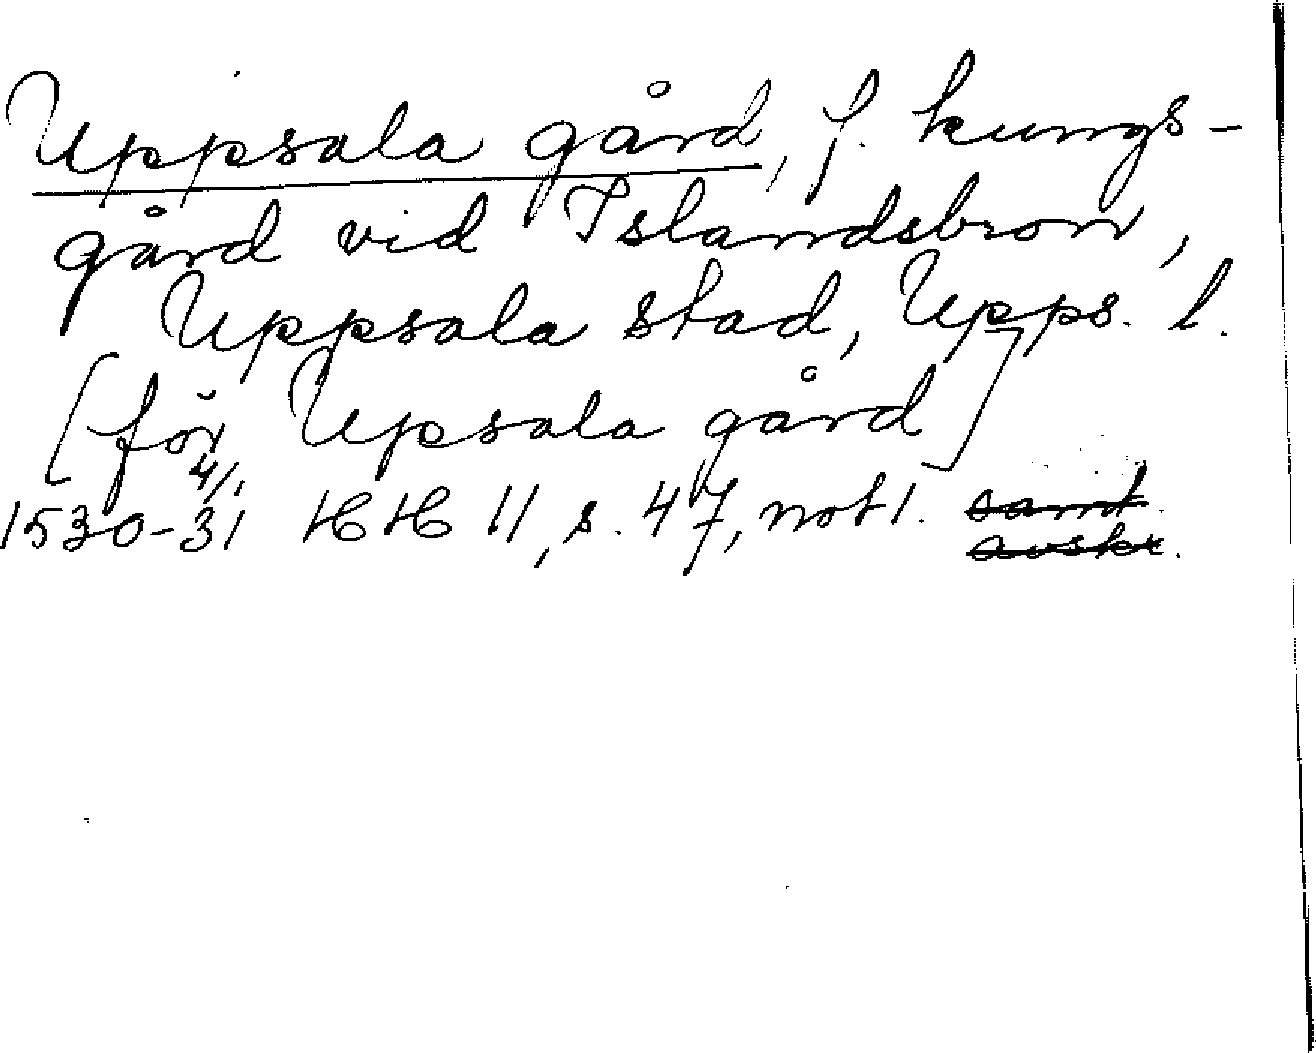 Uppsala gård, f. kungs-
gård vid Islandsbron,
Uppsala stad, Upps. l.
[för Upsala gård]
4/1
1530-31 HH 11, s. 47, not 1. samt.
avskr.